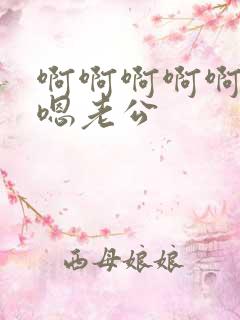 啊啊啊啊啊
嗯老公
西母娘娘